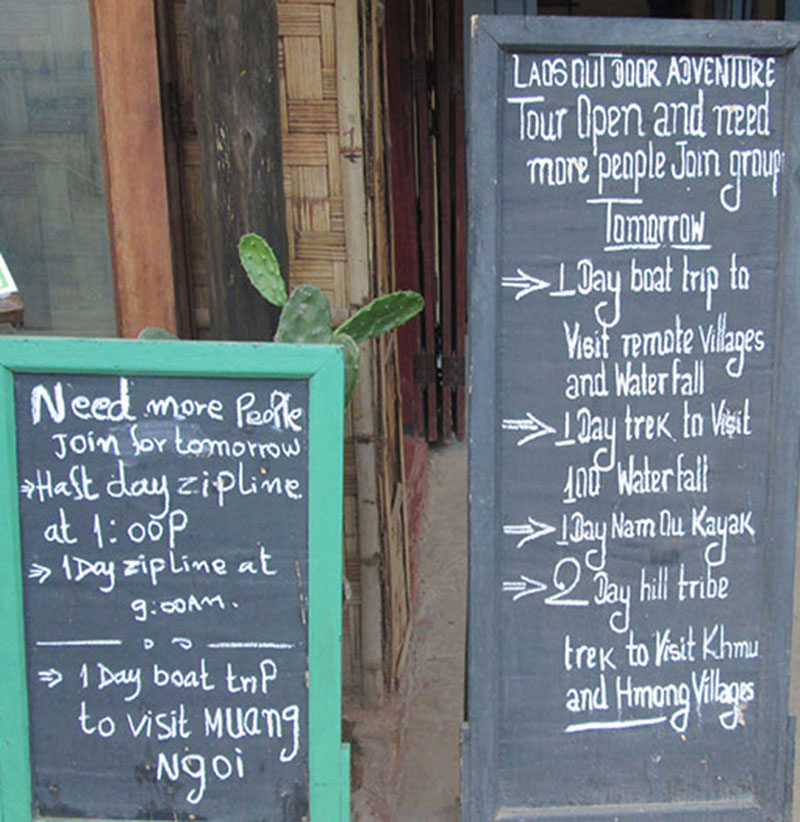 Need more People
Join for tomorrow
⇒ Haft day zipline
at 1:00P
⇒ 1 Day zipline at
9:00AM.
⇒ 1 Day boat trip
to visit MUANG
Ngoi
LAOS OUTDOOR ADVENTURE
Tour Open and need
more people Join group
Tomorrow
⇒ 1 Day boat trip to
Visit remote Villages
and Waterfall
⇒ 1 Day trek to Visit
100 Waterfall
⇒ 1 Day Nam Ou Kayak
⇒ 2 Day hill tribe
trek to Visit Khmu
and Hmong Villages